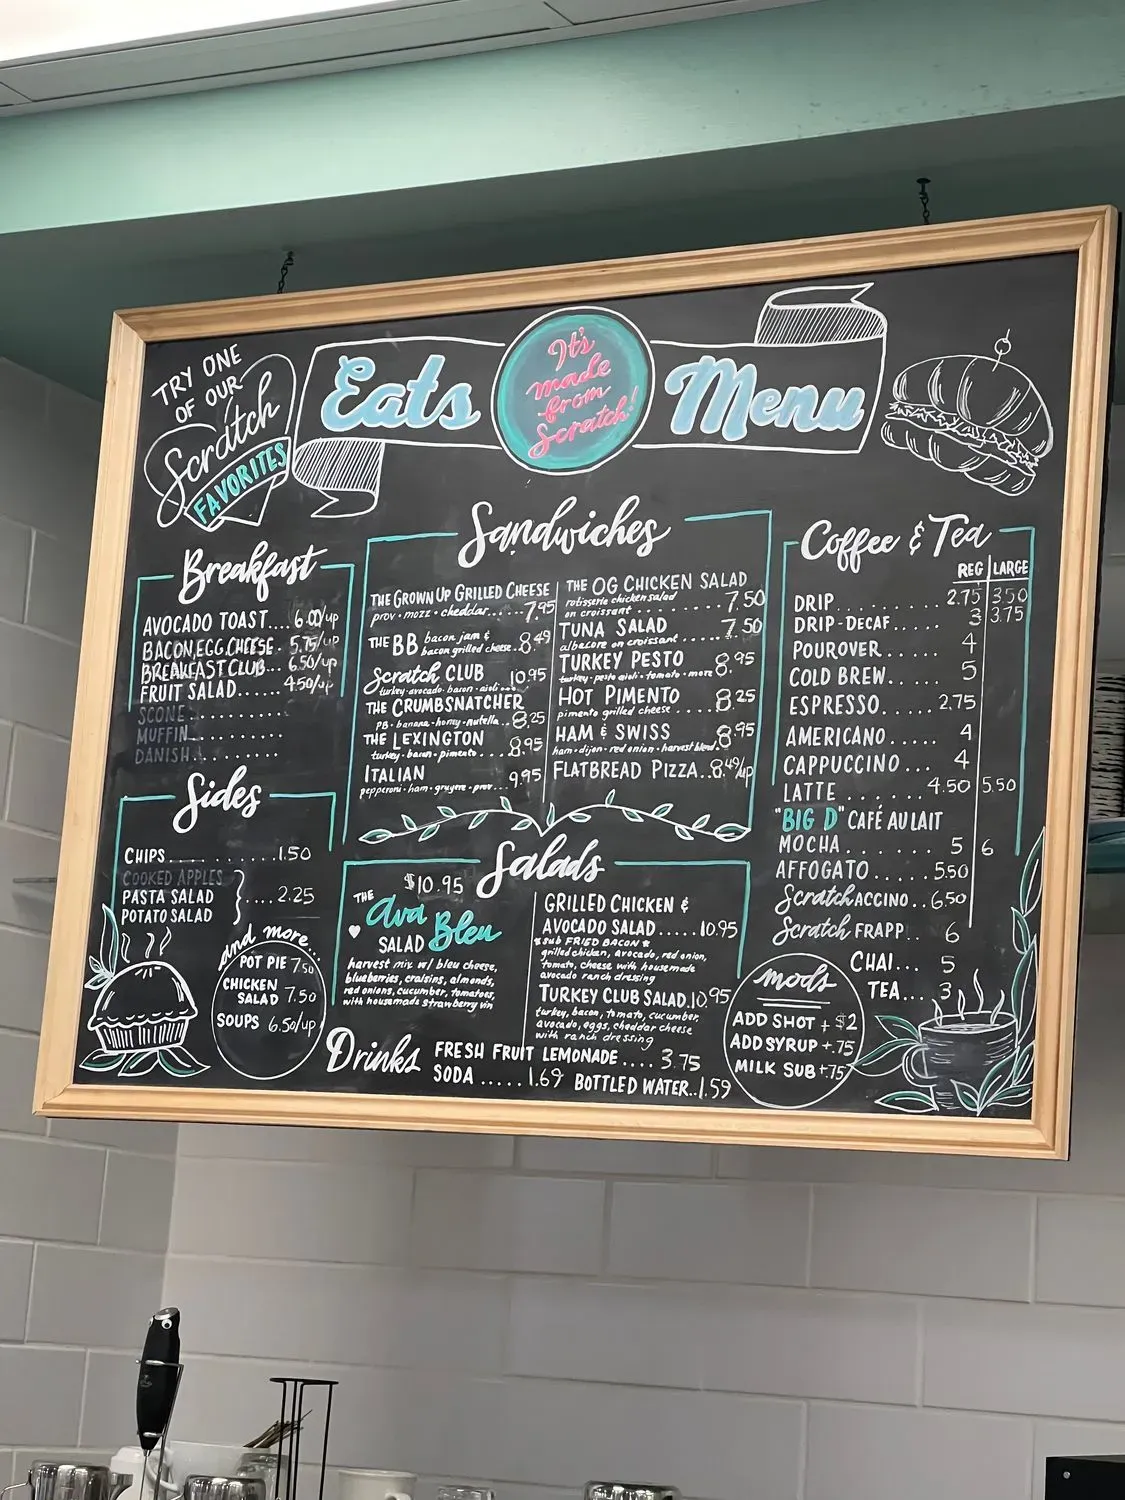 TRY ONE
OF OUR
Scratch
FAVORITES
Eats
It's
made
from
Scratch!
Menu
Breakfast
AVOCADO TOAST.... 6.00/up
BACON, EGG, CHEESE.. 5.75/up
BREAKFAST CLUB... 6.50/up
FRUIT SALAD...... 4.50/up
SCONE..........
MUFFIN..........
DANISH..........
Sides
CHIPS..............1.50
COOKED APPLES
PASTA SALAD } .... 2.25
POTATO SALAD
and more...
POT PIE 7.50
CHICKEN
SALAD 7.50
SOUPS 6.50/up
Sandwiches
THE GROWN UP GRILLED CHEESE
prov • mozz • cheddar..... 7.95
THE BB bacon jam &
bacon grilled cheese.. 8.49
Scratch CLUB 10.95
turkey • avocado • bacon • aioli
THE CRUMBSNATCHER
PB • banana • honey • nutella... 8.25
THE LEXINGTON
turkey • bacon • pimento.... 8.95
ITALIAN 9.95
pepperoni • ham • gruyere • prov...
THE OG CHICKEN SALAD
rotisserie chicken salad
on croissant.......... 7.50
TUNA SALAD 7.50
albacore on croissant......
TURKEY PESTO 8.95
turkey • pesto aioli • tomato • more
HOT PIMENTO 8.25
pimento grilled cheese.....
HAM & SWISS 8.95
ham • dijon • red onion • harvest blend.
FLATBREAD PIZZA..8.49/up
Salads
$10.95
THE
Ava
Bleu
SALAD
harvest mix w/ bleu cheese,
blueberries, craisins, almonds,
red onions, cucumber, tomatoes,
with housemade strawberry vin
GRILLED CHICKEN &
AVOCADO SALAD.....10.95
*SUB FRIED BACON*
grilled chicken, avocado, red onion,
tomato, cheese with housemade
avocado ranch dressing
TURKEY CLUB SALAD.10.95
turkey, bacon, tomato, cucumber,
avocado, eggs, cheddar cheese
with ranch dressing
Drinks
FRESH FRUIT LEMONADE .... 3.75
SODA ..... 1.69 BOTTLED WATER..1.59
Coffee & Tea
REG LARGE
DRIP.......... 2.75 3.50
DRIP-DECAF..... 3 3.75
POUROVER...... 4
COLD BREW...... 5
ESPRESSO...... 2.75
AMERICANO..... 4
CAPPUCCINO... 4
LATTE....... 4.50 5.50
"BIG D" CAFÉ AU LAIT
MOCHA....... 5 6
AFFOGATO..... 5.50
ScratchACCINO.. 6.50
Scratch FRAPP.. 6
CHAI... 5
TEA... 3
mods
ADD SHOT + $2
ADD SYRUP +.75
MILK SUB +.75